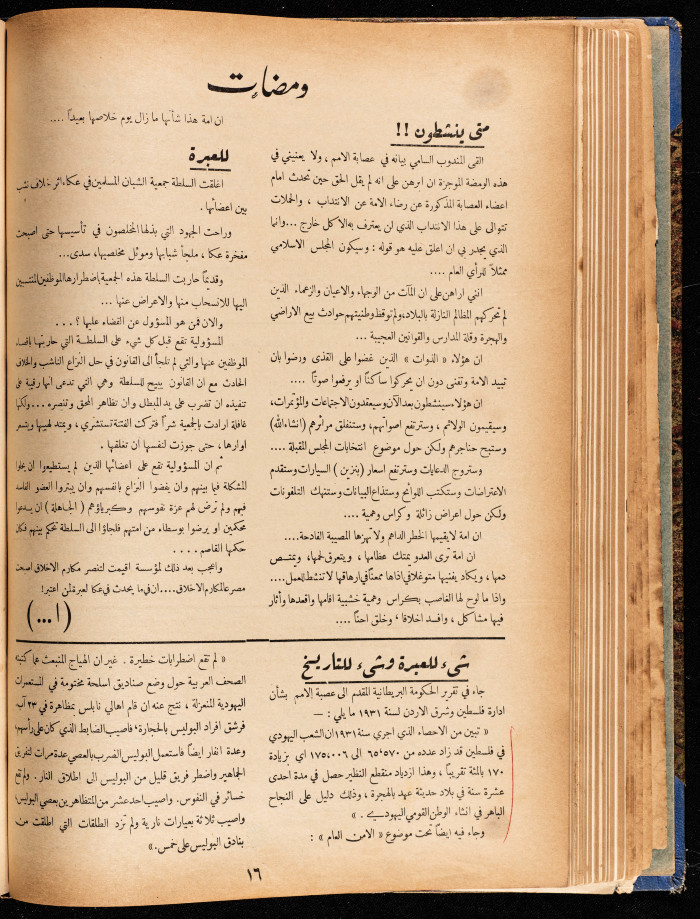 ومضات
متى ينشطون !!
القى المندوب السامي بيانه في عصابة الامم ، ولا يعنيني في
هذه الومضة الموجزة ان ابرهن على انه لم يقل الحق حين تحدث امام
اعضاء العصابة المذكورة عن رضاء الامة عن الانتداب ، والحملات
تتوالى على هذا الانتداب الذي لن يعترف به الا كل خارج ... وانما
الذي يجدر بي ان اعلق عليه هو قوله : وسيكون المجلس الاسلامي
ممثلاً للرأي العام ....
انني اراهن على ان المآت من الوجهاء والاعيان والزعماء الذين
لم تحركهم المظالم النازلة بالبلاد ، ولم توقظ وطنيتهم حوادث بيع الاراضي
والهجرة وقلة المدارس والقوانين العجيبة ...
ان هؤلاء « الذوات » الذين غضوا على القذى ورضوا بان
تبيد الامة وتفنى دون ان يحركوا ساكناً او يرفعوا صوتاً ....
ان هؤلاء سينشطون بعد الآن وسيعقدون الاجتماعات والمؤتمرات،
وسيقيمون الولائم ، وسترتفع اصواتهم، وستنفلق مرائرهم ( انشاء الله )
وستبح حناجرهم ولكن حول موضوع انتخابات المجلس المقبلة ....
وستروج الدعايات وسترتفع اسعار ( بنزين ) السيارات وستقدم
الاعتراضات وستكتب اللوائح وستذاع البيانات وستنهك التلفونات
ولكن حول اعراض زائلة وكراس وهمية ....
ان امة لا يقيمها الخطر الداهم ولا تهزها المصيبة الفادحة....
ان امة ترى العدو يمتك عظامها ، ويتعرق لحمها، ويمتص
دمها ، ويكاد يفنيها متوغلا في اذاها ممعناً في ارهاقها لا تنشط للعمل....
واذا ما لوح لها الغاصب بكراس وهمية خشبية اقامها واقعدها وأثار
فيها مشاكل ، وافسد اخلاقا ، وخلق احناً ....
ان امة هذا شأنها ما زال يوم خلاصها بعيداً ....
للعبرة
اغلقت السلطة جمعية الشبان المسلمين في عكا اثر خلاف نشب
بين اعضائها .
وراحت الجهود التي بذلها المخلصون في تأسيسها حتى اصبحت
مفخرة عكا ، ملجأ شبابها وموئل مخلصيها، سدى...
وقديماً حاربت السلطة هذه الجمعية باضطرارها الموظفين المنتسبين
اليها للانسحاب منها والاعراض عنها ...
والان فمن هو المسؤول عن القضاء عليها ؟ . . .
المسؤولية تقع قبل كل شيء على السلطة التي حاربتها باقصاء
الموظفين عنها والتي لم تلجأ الى القانون في حل النزاع الناشب والخلاف
الحادث مع ان القانون يبيح للسلطة وهي التي تدعى انها رقيبة على
تنفيذه ان تضرب على يد المبطل وان تظاهر المحق وتنصره ... ولكنها
غافلة ارادت بالجمعية شراً فتركت الفتنة تستشري ، ويمتد لهيبها ويتسعر
اوارها ، حتى جوزت لنفسها ان تغلقها .
ثم ان المسؤولية تقع على اعضائها الذين لم يستطيعوا ان يحلوا
المشكلة فيما بينهم وان يفضوا النزاع بانفسهم وان يبتروا العضو الفاسد
فيهم ولم ترض لهم عزة نفوسهم وكبرياؤهم ( الجاهلة ) ان يدعوا
محكمين او يرضوا بوسطاء من امتهم فلجاؤا الى السلطة تحكم بينهم فكان
حكمها القاسم ....
واعجب بعد ذلك لمؤسسة اقيمت لتنصر مكارم الاخلاق اصبحت
مصرعا لمكارم الاخلاق.... ان في ما يحدث في عكا لعبرة لمن اعتبر !
(ا...)
شيء للعبرة وشيء للتاريخ
جاء في تقرير الحكومة البريطانية المقدم الى عصبة الامم بشأن
ادارة فلسطين وشرق الاردن لسنة ١٩٣١ ما يلي : —
« تبين من الاحصاء الذي اجري سنة ١٩٣١ ان الشعب اليهودي
في فلسطين قد زاد عدده من ٦٥،٥٧٠ الى ١٧٥،٠٠٦ اي بزيادة
١٧٠ بالمئة تقريباً ، وهذا ازدياد منقطع النظير حصل في مدة احدى
عشرة سنة في بلاد حديثة عهد بالهجرة ، وذلك دليل على النجاح
الباهر في انشاء الوطن القومي اليهودي . »
وجاء فيه ايضاً تحت موضوع « الامن العام » :
« لم تقع اضطرابات خطيرة . غير ان الهياج المنبعث عما كتبته
الصحف العربية حول وضع صناديق اسلحة مختومة في المستعمرات
اليهودية المنعزلة ، نتج عنه ان قام اهالي نابلس بمظاهرة في ٢٣ آب
فرشق افراد البوليس بالحجارة، فاصيب الضابط الذي كان على رأسهم،
وعدة انفار ايضاً فاستعمل البوليس الضرب بالعصي عدة مرات لتفريق
الجماهير واضطر فريق قليل من البوليس الى اطلاق النار . ولم تقع
خسائر في النفوس . واصيب احد عشر من المتظاهرين بعصي البوليس
واصيب ثلاثة بعيارات نارية ولم تزد الطلقات التي اطلقت من
بنادق البوليس على خمس.»
١٦